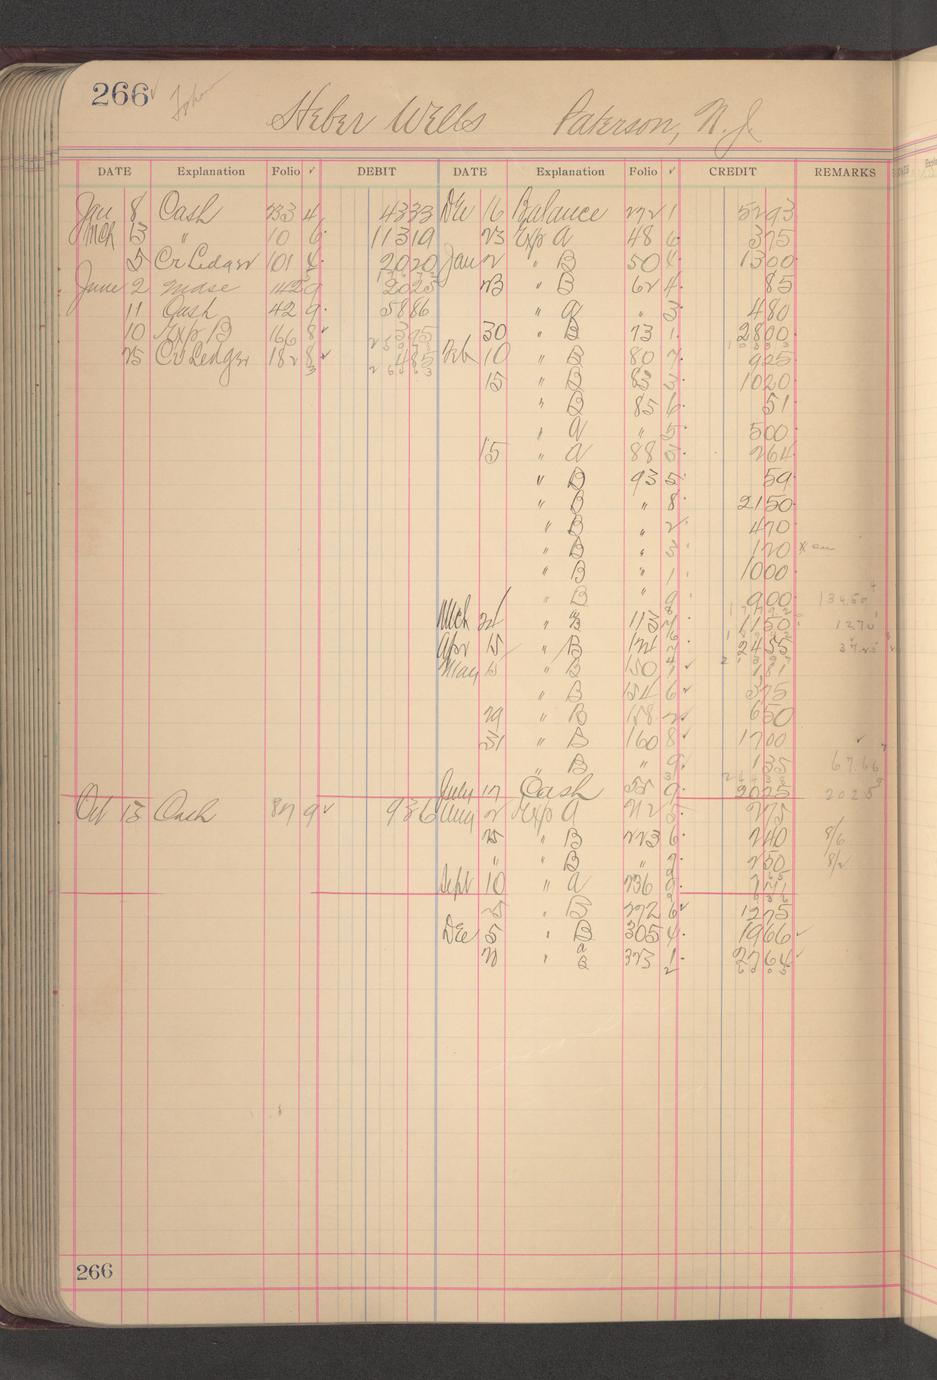 266
Heber Wells Paterson, N. J.
DATE Explanation Folio ✓ DEBIT DATE Explanation Folio ✓ CREDIT REMARKS
Jan 8 Cash 233 4 4333 Dec 16 Balance 272 1 5293
Mch 13 " 10 6 11319 23 Exp a 48 6 375
5 Cr Ledger 101 4 2020 Jan 2 " B 50 4 1300
June 2 mdse 142 9 2025 23 " B 62 4 85
11 Cash 42 9 5886 " a " 3 480
10 Exp B 166 8 ✓ 395 30 " B 73 1 2800
25 Cr Ledger 182 8 ✓ 485 Feb 10 " B 80 7 925
15 " B 83 3 1020
" B 85 6 51
" a " 5 500
15 " a 88 5 264
" B 93 5 59
" B " 8 2150
" B " 2 470
" B " 3 120
" B " 1 1000
" B " 9 900
Mch 21 " B 113 7 1150 1270
Apr 15 " B 121 7 2455
May 15 " B 150 7 ✓ 181
" B 154 6 ✓ 375
29 " B 158 2 650
31 " B 160 8 ✓ 1700
" B " 9 135 67.66
July 17 Cash 55 9 2025 2025
Oct 13 Cash 87 9 ✓ 936 Aug 2 Exp a 212 5 275
25 " B 223 6 240 8/6
" " B " 7 250 8/2
Sept 10 " a 236 9
25 " B 272 6 ✓ 1275
Dec 5 " B 305 4 1966 ✓
20 " B 323 1 2764 ✓
266